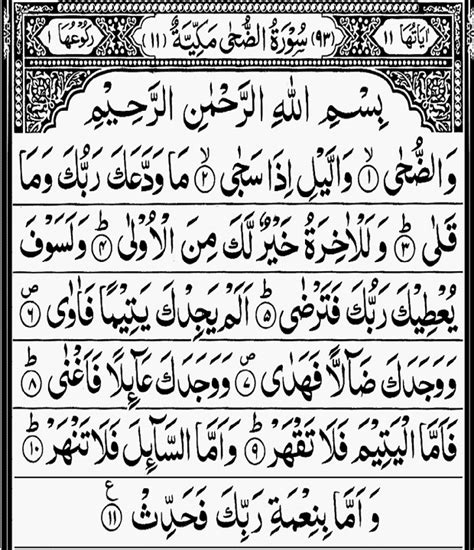 اٰیَاتُهَا ۱۱ (۹۳) سُوْرَةُ الضُّحٰی مَكِّيَّةٌ (۱۱) رُكُوْعُهَا ۱
بِسْمِ اللّٰهِ الرَّحْمٰنِ الرَّحِيْمِ
وَالضُّحٰی ۙ﴿۱﴾ وَالَّيْلِ اِذَا سَجٰی ۙ﴿۲﴾ مَا وَدَّعَكَ رَبُّكَ وَمَا
قَلٰی ؕ﴿۳﴾ وَلَلْاٰخِرَةُ خَيْرٌ لَّكَ مِنَ الْاُوْلٰی ؕ﴿۴﴾ وَلَسَوْفَ
يُعْطِيْكَ رَبُّكَ فَتَرْضٰی ؕ﴿۵﴾ اَلَمْ يَجِدْكَ يَتِيْمًا فَاٰوٰی ۪﴿۶﴾
وَوَجَدَكَ ضَآلًّا فَهَدٰی ۪﴿۷﴾ وَوَجَدَكَ عَآئِلًا فَاَغْنٰی ؕ﴿۸﴾
فَاَمَّا الْيَتِيْمَ فَلَا تَقْهَرْ ؕ﴿۹﴾ وَاَمَّا السَّآئِلَ فَلَا تَنْهَرْ ؕ﴿۱۰﴾
وَاَمَّا بِنِعْمَةِ رَبِّكَ فَحَدِّثْ ﴿۱۱﴾ ع